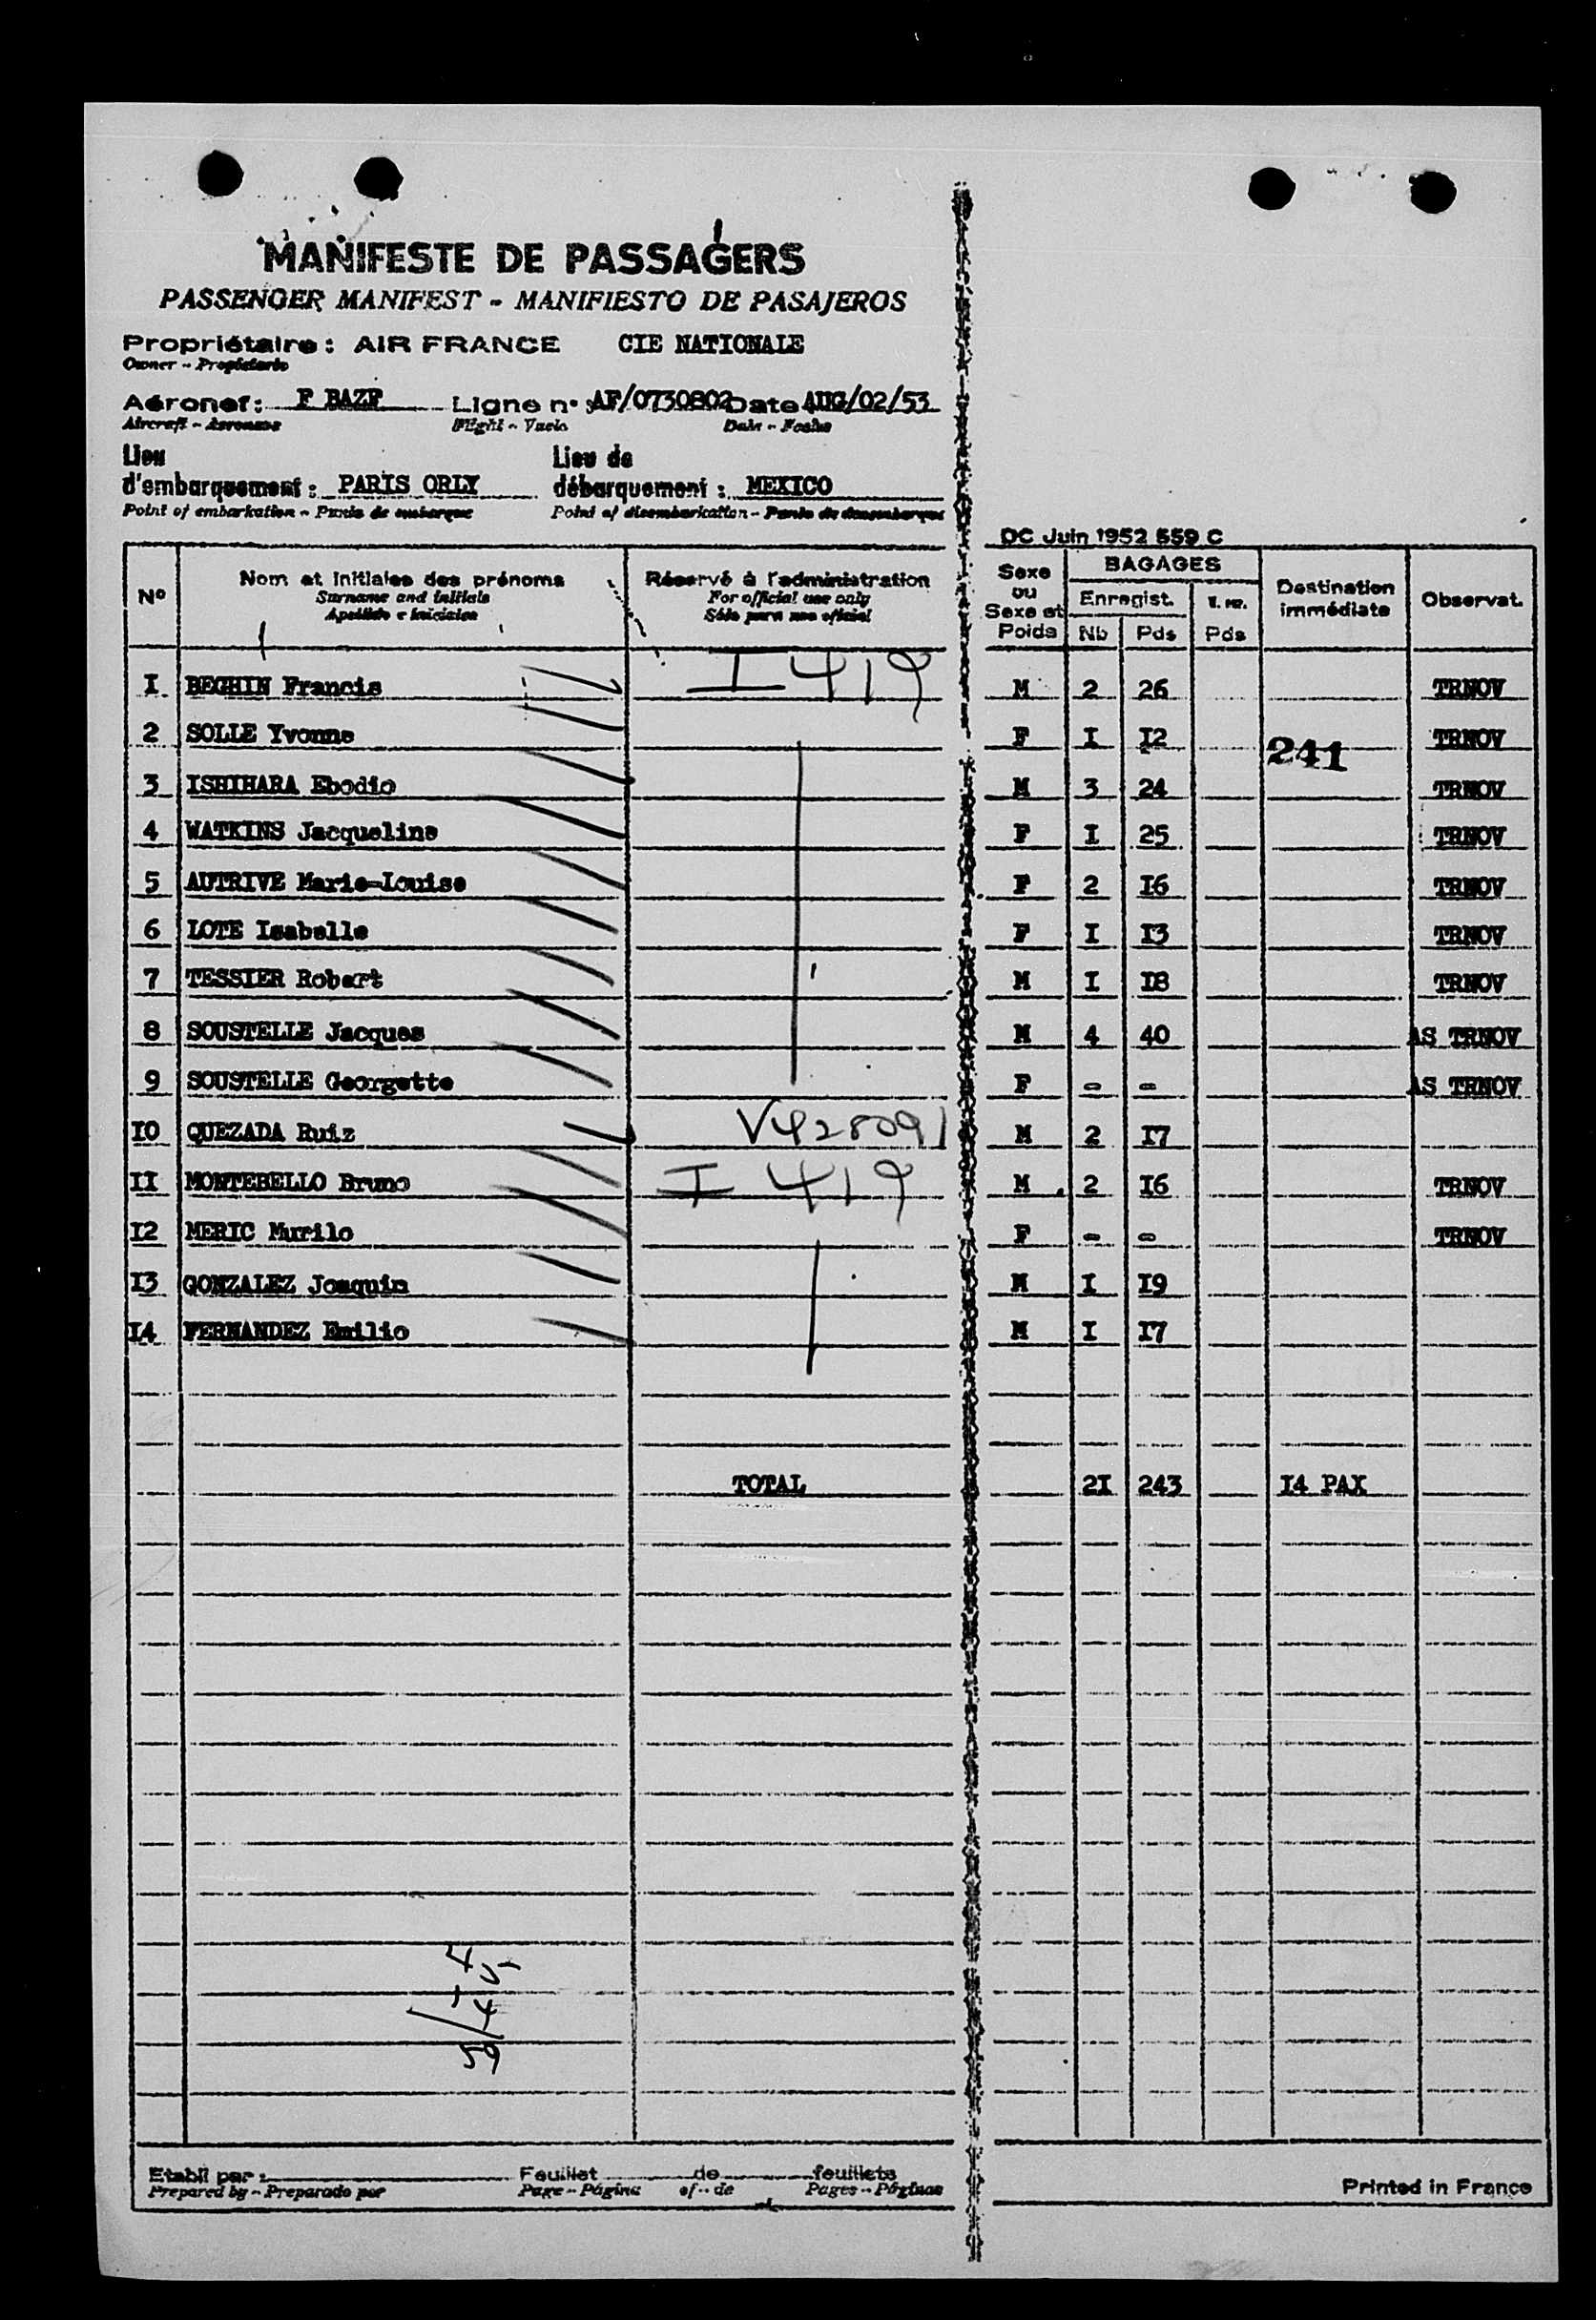 MANIFESTE DE PASSAGERS
PASSENGER MANIFEST - MANIFIESTO DE PASAJEROS
Propriétaire : AIR FRANCE CIE NATIONALE
Owner - Propietario
Aéronef : F BAZF Ligne n° : AF/0730802 Date AUG/02/53
Aircraft - Aeronave Flight - Vuelo Date - Fecha
Lieu Lieu de
d'embarquement : PARIS ORLY débarquement : MEXICO
Point of embarkation - Punto de embarque Point of disembarkation - Punto de desembarque
DC Juin 1952 559 C
N° Nom et initiales des prénoms Réservé à l'administration Sexe ou Sexe et Poids BAGAGES Enregist. Nb Pds Pds Destination immédiate Observat.
Surname and initials For official use only
Apellido e iniciales Sólo para uso oficial
I BEGHIN Francis I 419 M 2 26 TRNOV
2 SOLLE Yvonne F I I2 241 TRNOV
3 ISHIHARA Ebodio M 3 24 TRNOV
4 WATKINS Jacqueline F I 25 TRNOV
5 AUTRIVE Marie-Louise F 2 I6 TRNOV
6 LOTE Isabelle F I I3 TRNOV
7 TESSIER Robert M I I8 TRNOV
8 SOUSTELLE Jacques M 4 40 AS TRNOV
9 SOUSTELLE Georgette F - - AS TRNOV
I0 QUEZADA Ruiz V428091 M 2 I7
II MONTEBELLO Bruno I 419 M 2 I6 TRNOV
I2 MERIC Murilo F - - TRNOV
I3 GONZALEZ Joaquin M I I9
I4 FERNANDEZ Emilio M I I7
TOTAL 2I 243 I4 PAX
Etabli par : Feuillet de feuillets
Prepared by - Preparado por Page - Página of - de Pages - Páginas
Printed in France